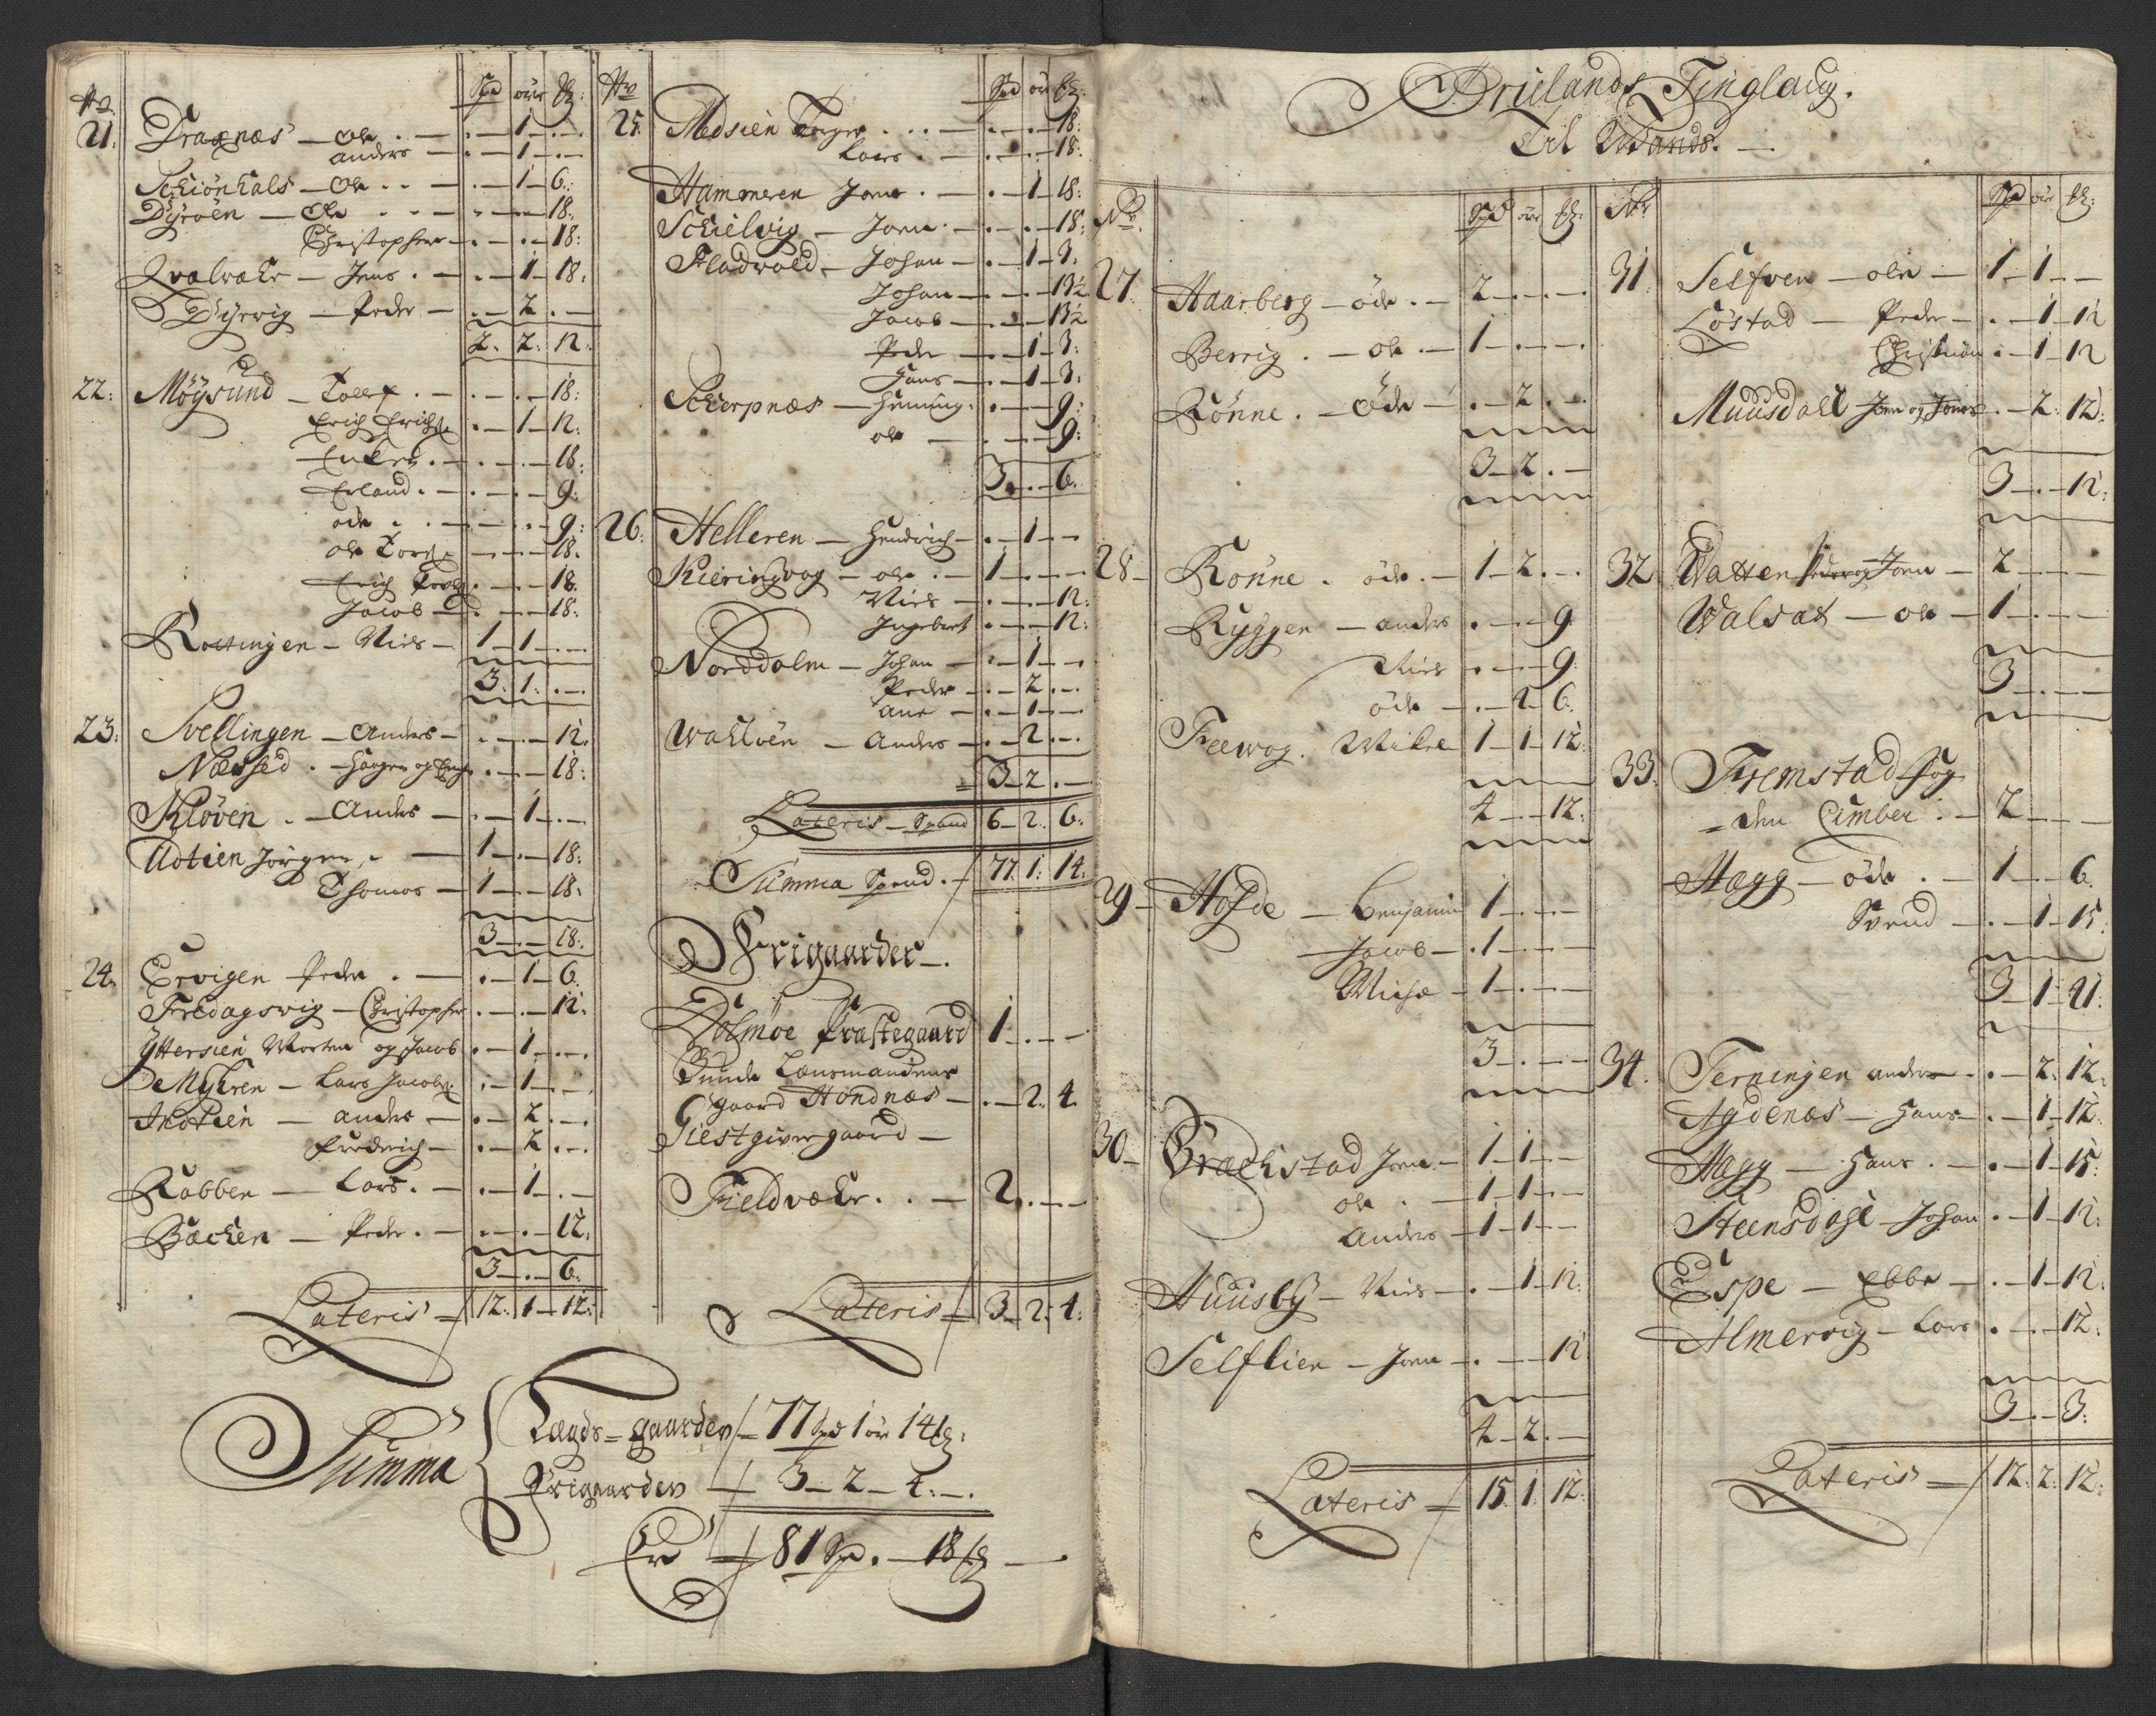 No Spd öre
21. Draxnæs – Ole . – . – 1 – . –
anders – . – 1 – . –
Schiönhals – Ole . . – . – 1 – 6.
Dyröen – Ole . . – . – . – 18.
Christopher – . – . – 18:
Qvalvær – Jens . – . – 1 – 18.
Dyrvig – Peder – . – 2 . –
2. 2. 12.
22. Möysund – Tollef . – . – . – 18.
Erich Erichs . – 1 – 12.
. – . – 18.
Erland . – . – . – 9.
öde . . – . – . – 9.
ole Tors – . – . – 18.
Erich . – . – 18.
Jacob – . – . – 18.
Rottingen – Niels – 1 – 1 – . –
3. 1. . –
23. Svellingen – Anders – . – . – 12.
Næssed . – Haagen og . – . – 18:
Klöven . – Anders – . – 1 – . –
Udtien Jörgen . – 1 – . – 18.
Thomas – 1 – . – 18.
3 – . – 18.
24. Ervigen Peder . – . – 1 – 6.
Fredagsvig – Christopher . – . – 12.
Yttersien Morten og Jacob . – 1 – . –
De Myhren – Lars Jacobs . – 1 – . –
Indtien – anders – . – 2 . –
Friderich – . – 2 . –
Rabben – Lars . – . – 1 – . –
Bachen – Peder . – . – . – 12.
3 – . – 6.
Lateris – 12. 1 – 12.
No Spd ör
25. Medsien Torger . . . – . – . – 18.
Lars . – . – . – 18.
Hammeren Jens . – . – 1 – 18.
Schielvig – Joen . – . – . – 18.
Fladvold – Johan – . – 1 – 3.
Johan – . – . – 13½
Jacob – . – . – 13½
Peder – . – 1 – 3.
Hans – . – 1 – 3.
Schierpnæs – Henning . . – . – 9.
ole – . – . – 9.
3 . – 6.
26. Helleren – Hendrich – . – 1 – . –
Kieringvog – ole . – 1 – . – . –
Niels – . – . – 12.
Ingebret . – . – 12.
Norddalm – Johan – . – 1 – . –
Peder – . – 2 . –
ane – . – 1 – . –
Wahlöen – Anders – . – 2 . –
3 – 2 . –
Lateris – Spand 6 – 2. 6.
Summa Spand . – 77. 1. 14.
Frigaarder – .
Dolmöe Præstegaard 1 – . – . –
Bunde Lænsmandens
gaard Hondnæs – . – 2. 4.
Giestgivergaard –
Fieldvær . . – 2 . – . –
Lateris – 3 – 2. 4.
Summa
Lægds = gaarden – 77 Spd 1 ör 14
Frigaarden – 3 – 2 – 4. – .
Er – 81 Sp. . – 18
Ørelands Tinglaug.
No. Spd ör
27. Haarberg – öde . – 2 – . – . –
Berrig . – ole . – 1 – . – . –
Rönne . – Öde – . – 2 . –
3 – 2 . –
28 – Rönne . öde . – 1 – 2 . –
Ryggen – anders . – . – 9.
Niels . – . – 9.
öde – . – 2 – 6.
Feevog . Mikel 1 – 1 – 12.
4 – . – 12.
29 – Hofde – Benjamin 1 – . – . –
Jacob – . 1 – . – . –
Michel – 1 – . – . –
3 – . – . –
30 – Brechstad Joen – 1 – 1 – . –
ole . – 1 – 1 – . –
Anders – 1 – 1 – . –
Huusby – Niels – . – 1 – 12.
Selflien – Joen – . – . – 12
4 – 2 . –
Lateris – 15. 1. 12.
No Spd ör
31. Selfven – ole – 1 – 1 – . –
Löstad – Peder – . – 1 – 12
Christian . – 1 – 12
Muusdall Joen og Jens . – 2. 12.
3 – . – 12.
32 Watten Peder og Joen – 2 – . – . –
Walsat – ole – 1 – . – . –
3 – . – . –
33. Fremstad Sog
= den Cimber . – 2 – . – . –
Hagg – öde . – 1 – . – 6.
Svend – . – 1 – 15.
3 – 1 – 21.
34. Terningen anders – . – 2. 12.
Agdenæs – Hans – . – 1 – 12.
Hagg – Hans . – . – 1 – 15.
Steensdahl – Johan . – 1 – 12.
Espe – Ebbe – . – 1 – 12.
Almervig – Lars . – . – 12.
3 – . – 3.
Lateris – 12. 2. 12.